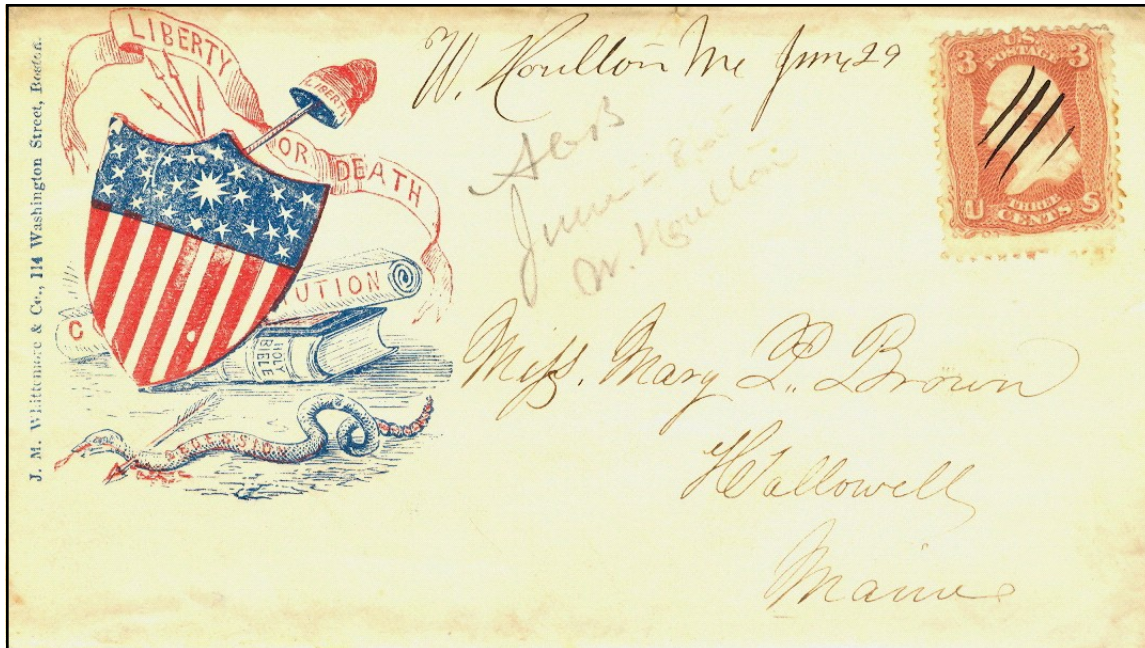 J. M. Whittemore & Co., 114 Washington Street, Boston.
LIBERTY OR DEATH
LIBERTY
C TUTION
HOLY BIBLE
SECESSION
W. Houlton Me June 29
June
W. Houlton
U.S. POSTAGE
3 3
THREE CENTS
U S
Miss. Mary L. Brown
Hallowell
Maine